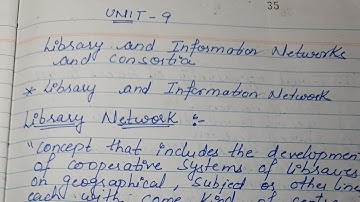 35
UNIT - 9
Library and Information Networks
and Consortia
* Library and Information Network
Library Network :-
"Concept that includes the developmen
of cooperative systems of libraries
on geographical, subject or other line
each with some kind of